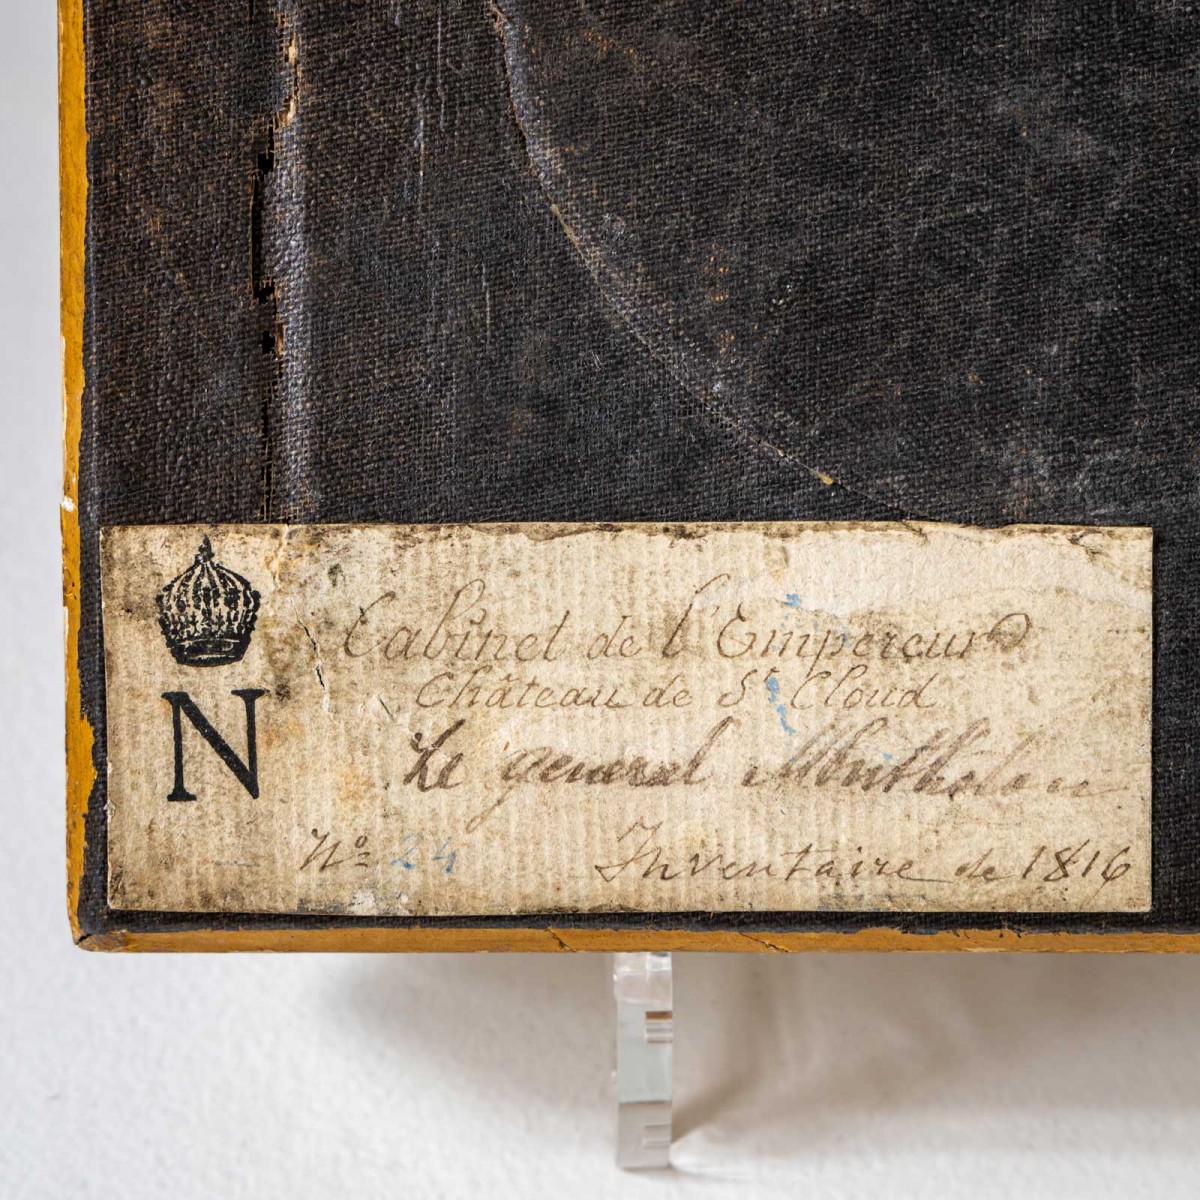 N
Cabinet de l'Empereur
Château de St Cloud
Le general Montholon
No 24 Inventaire de 1816